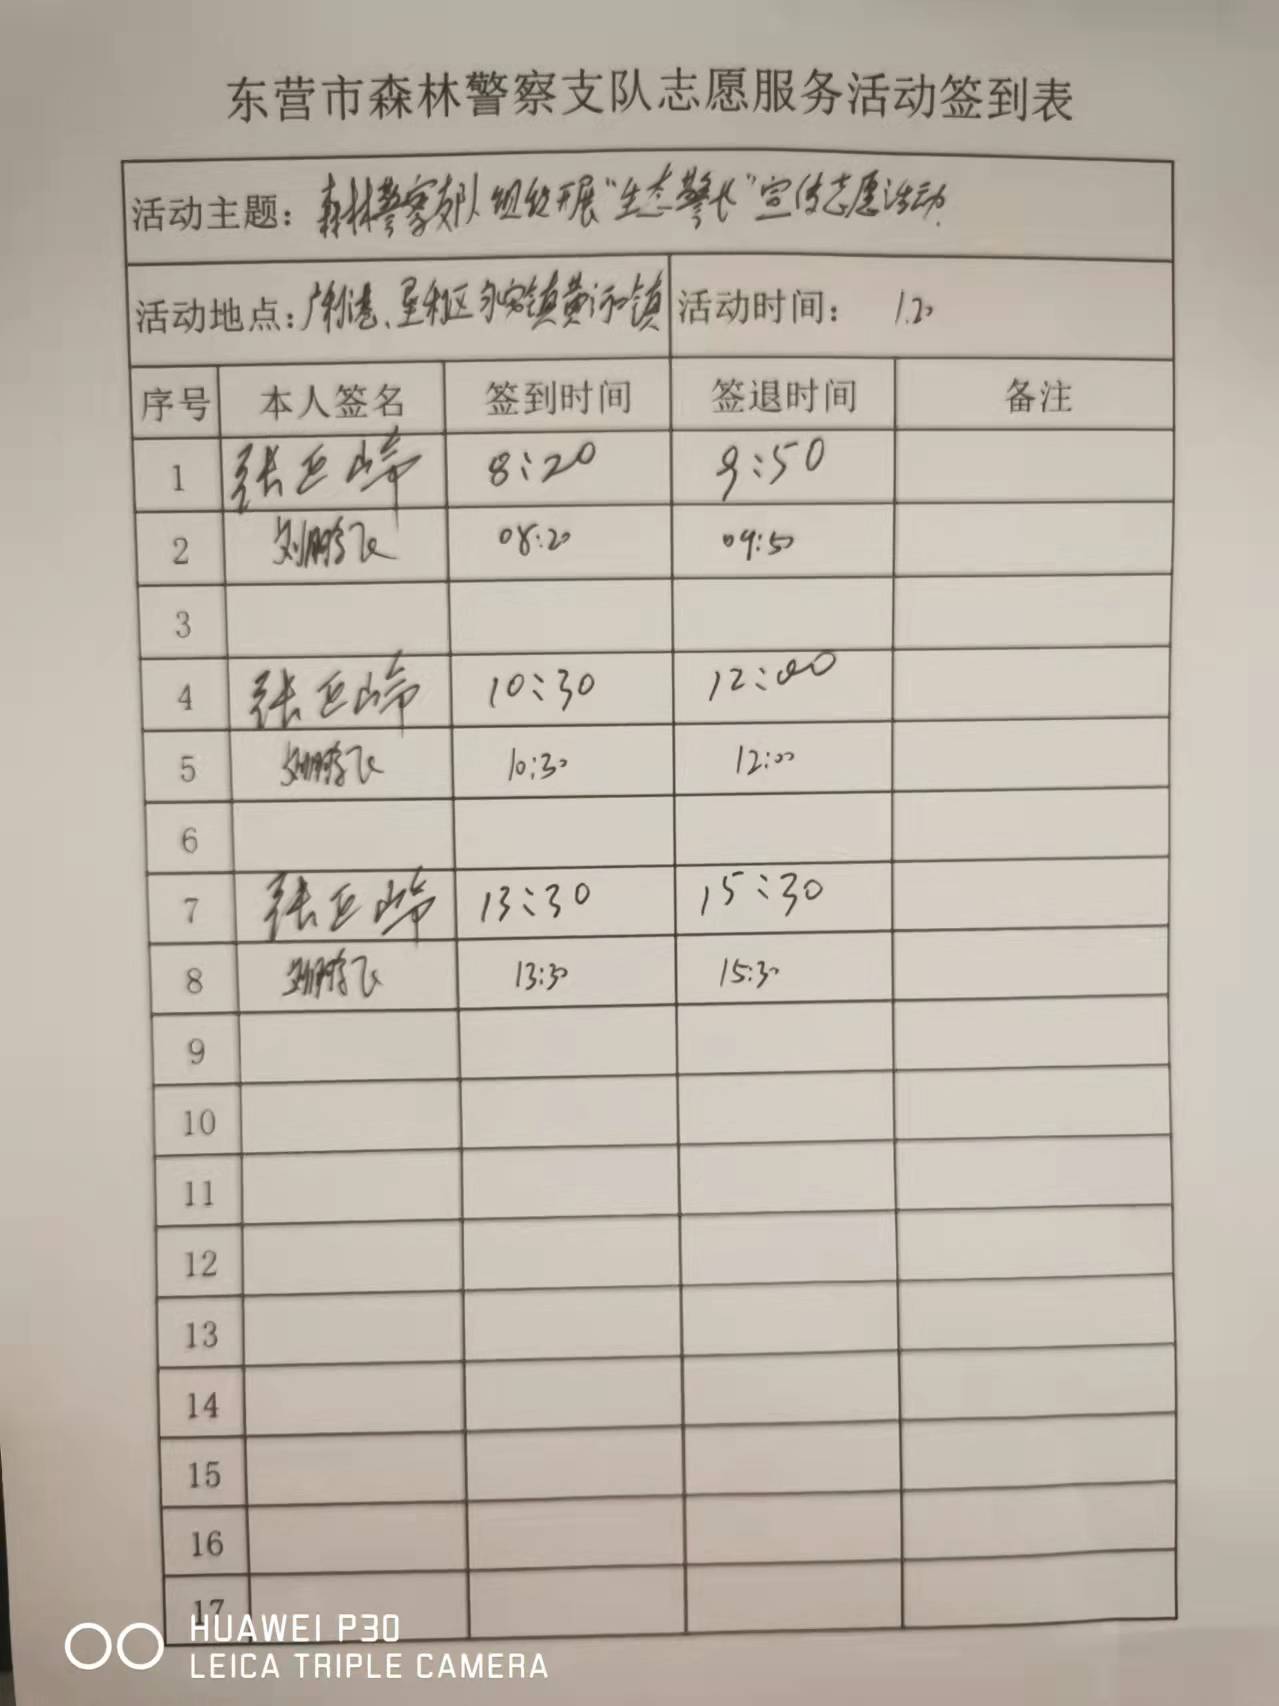 东营市森林警察支队志愿服务活动签到表
活动主题：森林警察支队组织开展“生态警长”宣传志愿活动
活动地点：广利港、垦利区永安镇黄河口镇 活动时间：1.20
序号 本人签名 签到时间 签退时间 备注
1 张 8:20 9:50
2 刘鹏飞 08:20 09:50
3
4 张 10:30 12:00
5 刘鹏飞 10:30 12:00
6
7 张 13:30 15:30
8 刘鹏飞 13:30 15:30
9
10
11
12
13
14
15
16
17
HUAWEI P30
LEICA TRIPLE CAMERA